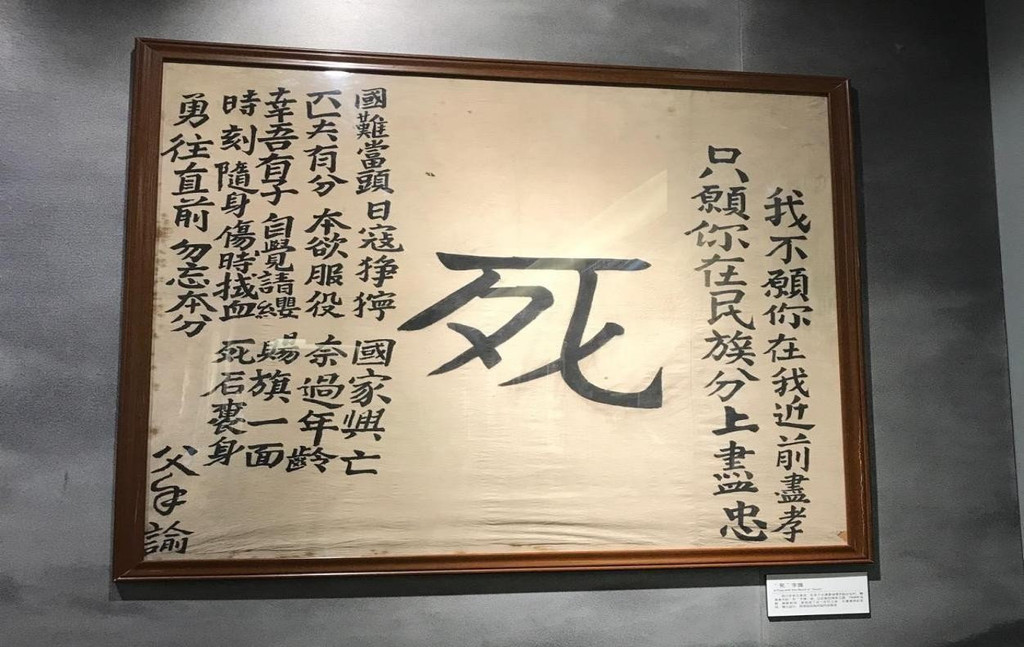 我不願你在我近前盡孝
只願你在民族分上盡忠
死
國難當頭 日寇猙獰 國家興亡
匹夫有分 本欲服役 奈過年齡
幸吾有子 自覺請纓 賜旗一面
時刻隨身 傷時拭血 死后裹身
勇往直前 勿忘本分
父手諭
“死”字旗